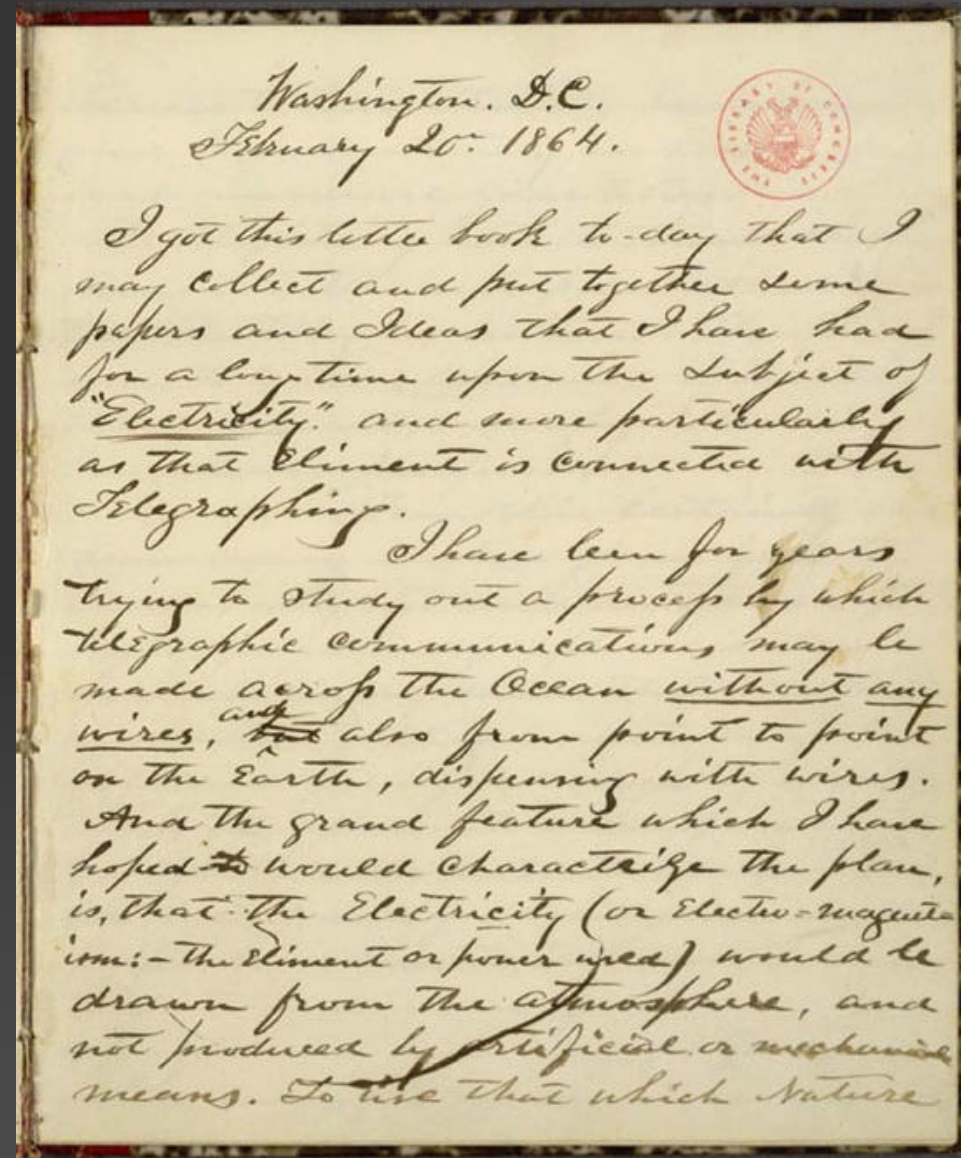 Washington. D.C.
February 20th 1864.
THE LIBRARY OF CONGRESS
I got this letter book to-day that I
may collect and put together some
papers and Ideas that I have had
for a long time upon the subject of
"Electricity." and more particularly
as that Eliment is connected with
Telegraphing.
I have been for years
trying to study out a process by which
telegraphic communications may be
made across the Ocean without any
wires, and but also from point to point
on the Earth, dispensing with wires.
And the grand feature which I have
hoped to would charactrize the plan,
is, that the Electricity (or Electro-magnet-
ism:- the Eliment or power used) would be
drawn from the atmosphere, and
not produced by artificial or mechanical
means. To use that which Nature